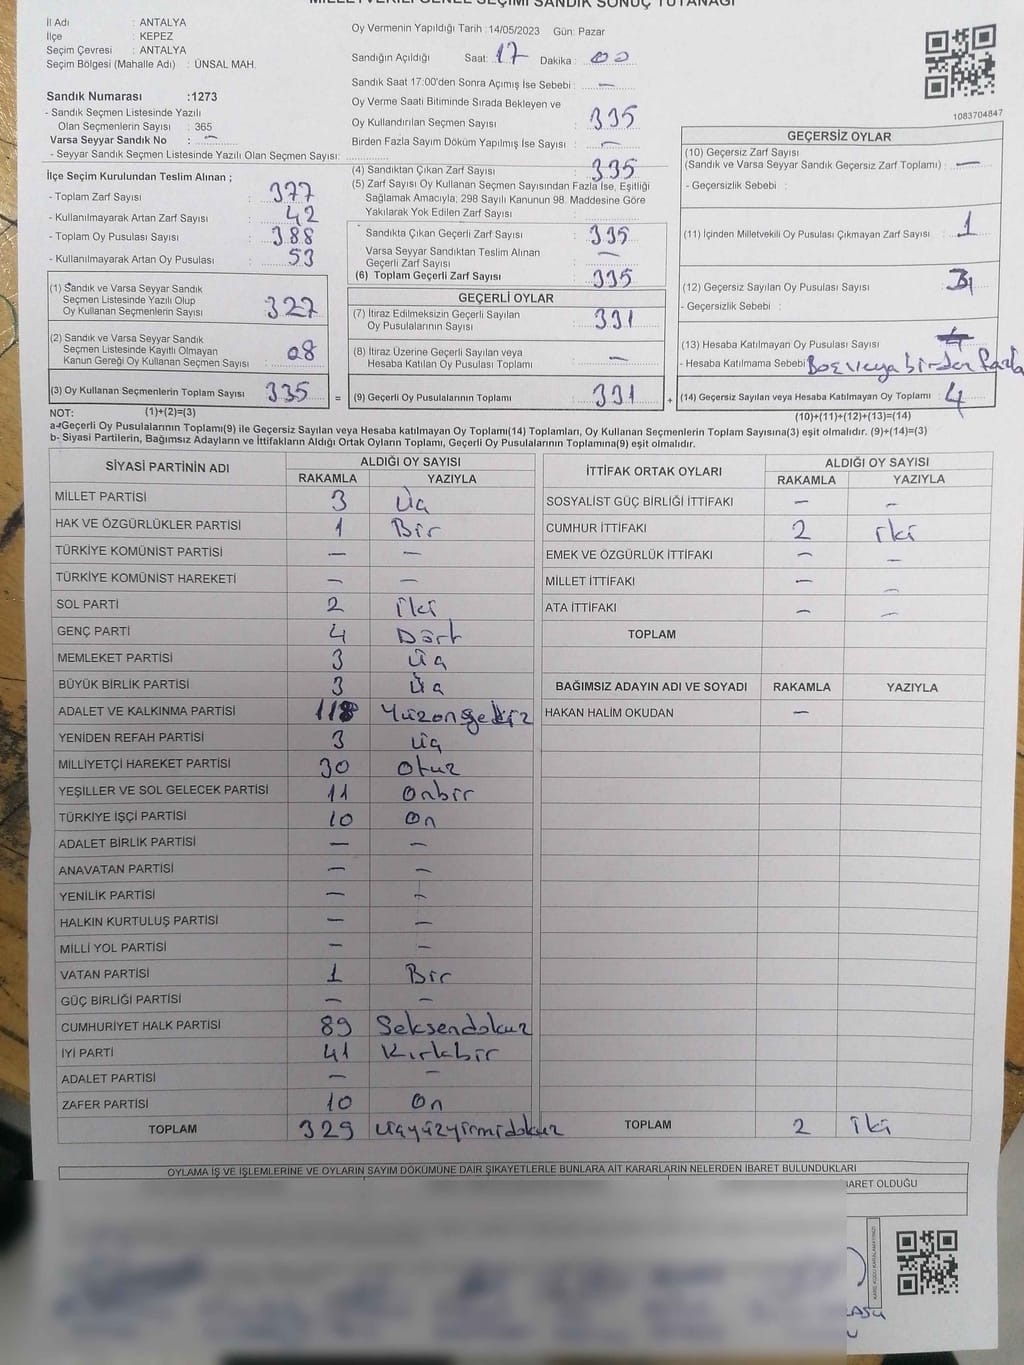 MİLLETVEKİLİ GENEL SEÇİMİ SANDIK SONUÇ TUTANAĞI
İl Adı : ANTALYA
İlçe : KEPEZ
Seçim Çevresi : ANTALYA
Seçim Bölgesi (Mahalle Adı) : ÜNSAL MAH.
Sandık Numarası :1273
- Sandık Seçmen Listesinde Yazılı
Olan Seçmenlerin Sayısı : 365
Varsa Seyyar Sandık No : —
- Seyyar Sandık Seçmen Listesinde Yazılı Olan Seçmen Sayısı:
İlçe Seçim Kurulundan Teslim Alınan ;
- Toplam Zarf Sayısı : 377
- Kullanılmayarak Artan Zarf Sayısı : 42
- Toplam Oy Pusulası Sayısı : 388
- Kullanılmayarak Artan Oy Pusulası : 53
(1) Sandık ve Varsa Seyyar Sandık
Seçmen Listesinde Yazılı Olup
Oy Kullanan Seçmenlerin Sayısı : 327
(2) Sandık ve Varsa Seyyar Sandık
Seçmen Listesinde Kayıtlı Olmayan
Kanun Gereği Oy Kullanan Seçmen Sayısı : 08
(3) Oy Kullanan Seçmenlerin Toplam Sayısı : 335 =
Oy Vermenin Yapıldığı Tarih : 14/05/2023 Gün: Pazar
Sandığın Açıldığı Saat: 17 Dakika : 00
Sandık Saat 17:00'den Sonra Açımış İse Sebebi : —
Oy Verme Saati Bitiminde Sırada Bekleyen ve
Oy Kullandırılan Seçmen Sayısı : 335
Birden Fazla Sayım Döküm Yapılmış İse Sayısı : —
(4) Sandıktan Çıkan Zarf Sayısı : 335
(5) Zarf Sayısı Oy Kullanan Seçmen Sayısından Fazla İse, Eşitliği
Sağlamak Amacıyla; 298 Sayılı Kanunun 98. Maddesine Göre
Yakılarak Yok Edilen Zarf Sayısı :
Sandıkta Çıkan Geçerli Zarf Sayısı : 335
Varsa Seyyar Sandıktan Teslim Alınan
Geçerli Zarf Sayısı : —
(6) Toplam Geçerli Zarf Sayısı : 335
GEÇERLİ OYLAR
(7) İtiraz Edilmeksizin Geçerli Sayılan
Oy Pusulalarının Sayısı : 331
(8) İtiraz Üzerine Geçerli Sayılan veya
Hesaba Katılan Oy Pusulaları Toplamı : —
(9) Geçerli Oy Pusulalarının Toplamı : 331 +
1083704847
GEÇERSİZ OYLAR
(10) Geçersiz Zarf Sayısı
(Sandık ve Varsa Seyyar Sandık Geçersiz Zarf Toplamı) : —
- Geçersizlik Sebebi :
(11) İçinden Milletvekili Oy Pusulası Çıkmayan Zarf Sayısı : 1
(12) Geçersiz Sayılan Oy Pusulası Sayısı : 3
- Geçersizlik Sebebi :
(13) Hesaba Katılmayan Oy Pusulası Sayısı :
- Hesaba Katılmama Sebebi : Boş veya birden fazla
(14) Geçersiz Sayılan veya Hesaba Katılmayan Oy Toplamı : 4
NOT: (1)+(2)=(3) (10)+(11)+(12)+(13)=(14)
a-Geçerli Oy Pusulalarının Toplamı(9) ile Geçersiz Sayılan veya Hesaba Katılmayan Oy Toplamı(14) Toplamları, Oy Kullanan Seçmenlerin Toplam Sayısına(3) eşit olmalıdır. (9)+(14)=(3)
b- Siyasi Partilerin, Bağımsız Adayların ve İttifakların Aldığı Ortak Oyların Toplamı, Geçerli Oy Pusulalarının Toplamına(9) eşit olmalıdır.
SİYASİ PARTİNİN ADI ALDIĞI OY SAYISI
RAKAMLA YAZIYLA
MİLLET PARTİSİ 3 Üç
HAK VE ÖZGÜRLÜKLER PARTİSİ 1 Bir
TÜRKİYE KOMÜNİST PARTİSİ — —
TÜRKİYE KOMÜNİST HAREKETİ — —
SOL PARTİ 2 iki
GENÇ PARTİ 4 Dört
MEMLEKET PARTİSİ 3 Üç
BÜYÜK BİRLİK PARTİSİ 3 Üç
ADALET VE KALKINMA PARTİSİ 118 Yüzonsekiz
YENİDEN REFAH PARTİSİ 3 Üç
MİLLİYETÇİ HAREKET PARTİSİ 30 Otuz
YEŞİLLER VE SOL GELECEK PARTİSİ 11 Onbir
TÜRKİYE İŞÇİ PARTİSİ 10 On
ADALET BİRLİK PARTİSİ — —
ANAVATAN PARTİSİ — —
YENİLİK PARTİSİ — —
HALKIN KURTULUŞ PARTİSİ — —
MİLLİ YOL PARTİSİ — —
VATAN PARTİSİ 1 Bir
GÜÇ BİRLİĞİ PARTİSİ — —
CUMHURİYET HALK PARTİSİ 89 Seksendokuz
İYİ PARTİ 41 Kırkbir
ADALET PARTİSİ — —
ZAFER PARTİSİ 10 On
TOPLAM 329 üçyüzyirmidokuz
İTTİFAK ORTAK OYLARI ALDIĞI OY SAYISI
RAKAMLA YAZIYLA
SOSYALİST GÜÇ BİRLİĞİ İTTİFAKI — —
CUMHUR İTTİFAKI 2 iki
EMEK VE ÖZGÜRLÜK İTTİFAKI — —
MİLLET İTTİFAKI — —
ATA İTTİFAKI — —
TOPLAM
BAĞIMSIZ ADAYIN ADI VE SOYADI RAKAMLA YAZIYLA
HAKAN HALİM OKUDAN —
TOPLAM 2 iki
OYLAMA İŞ VE İŞLEMLERİNE VE OYLARIN SAYIM DÖKÜMÜNE DAİR ŞİKAYETLERLE BUNLARA AİT KARARLARIN NELERDEN İBARET BULUNDUKLARI
İBARET OLDUĞU